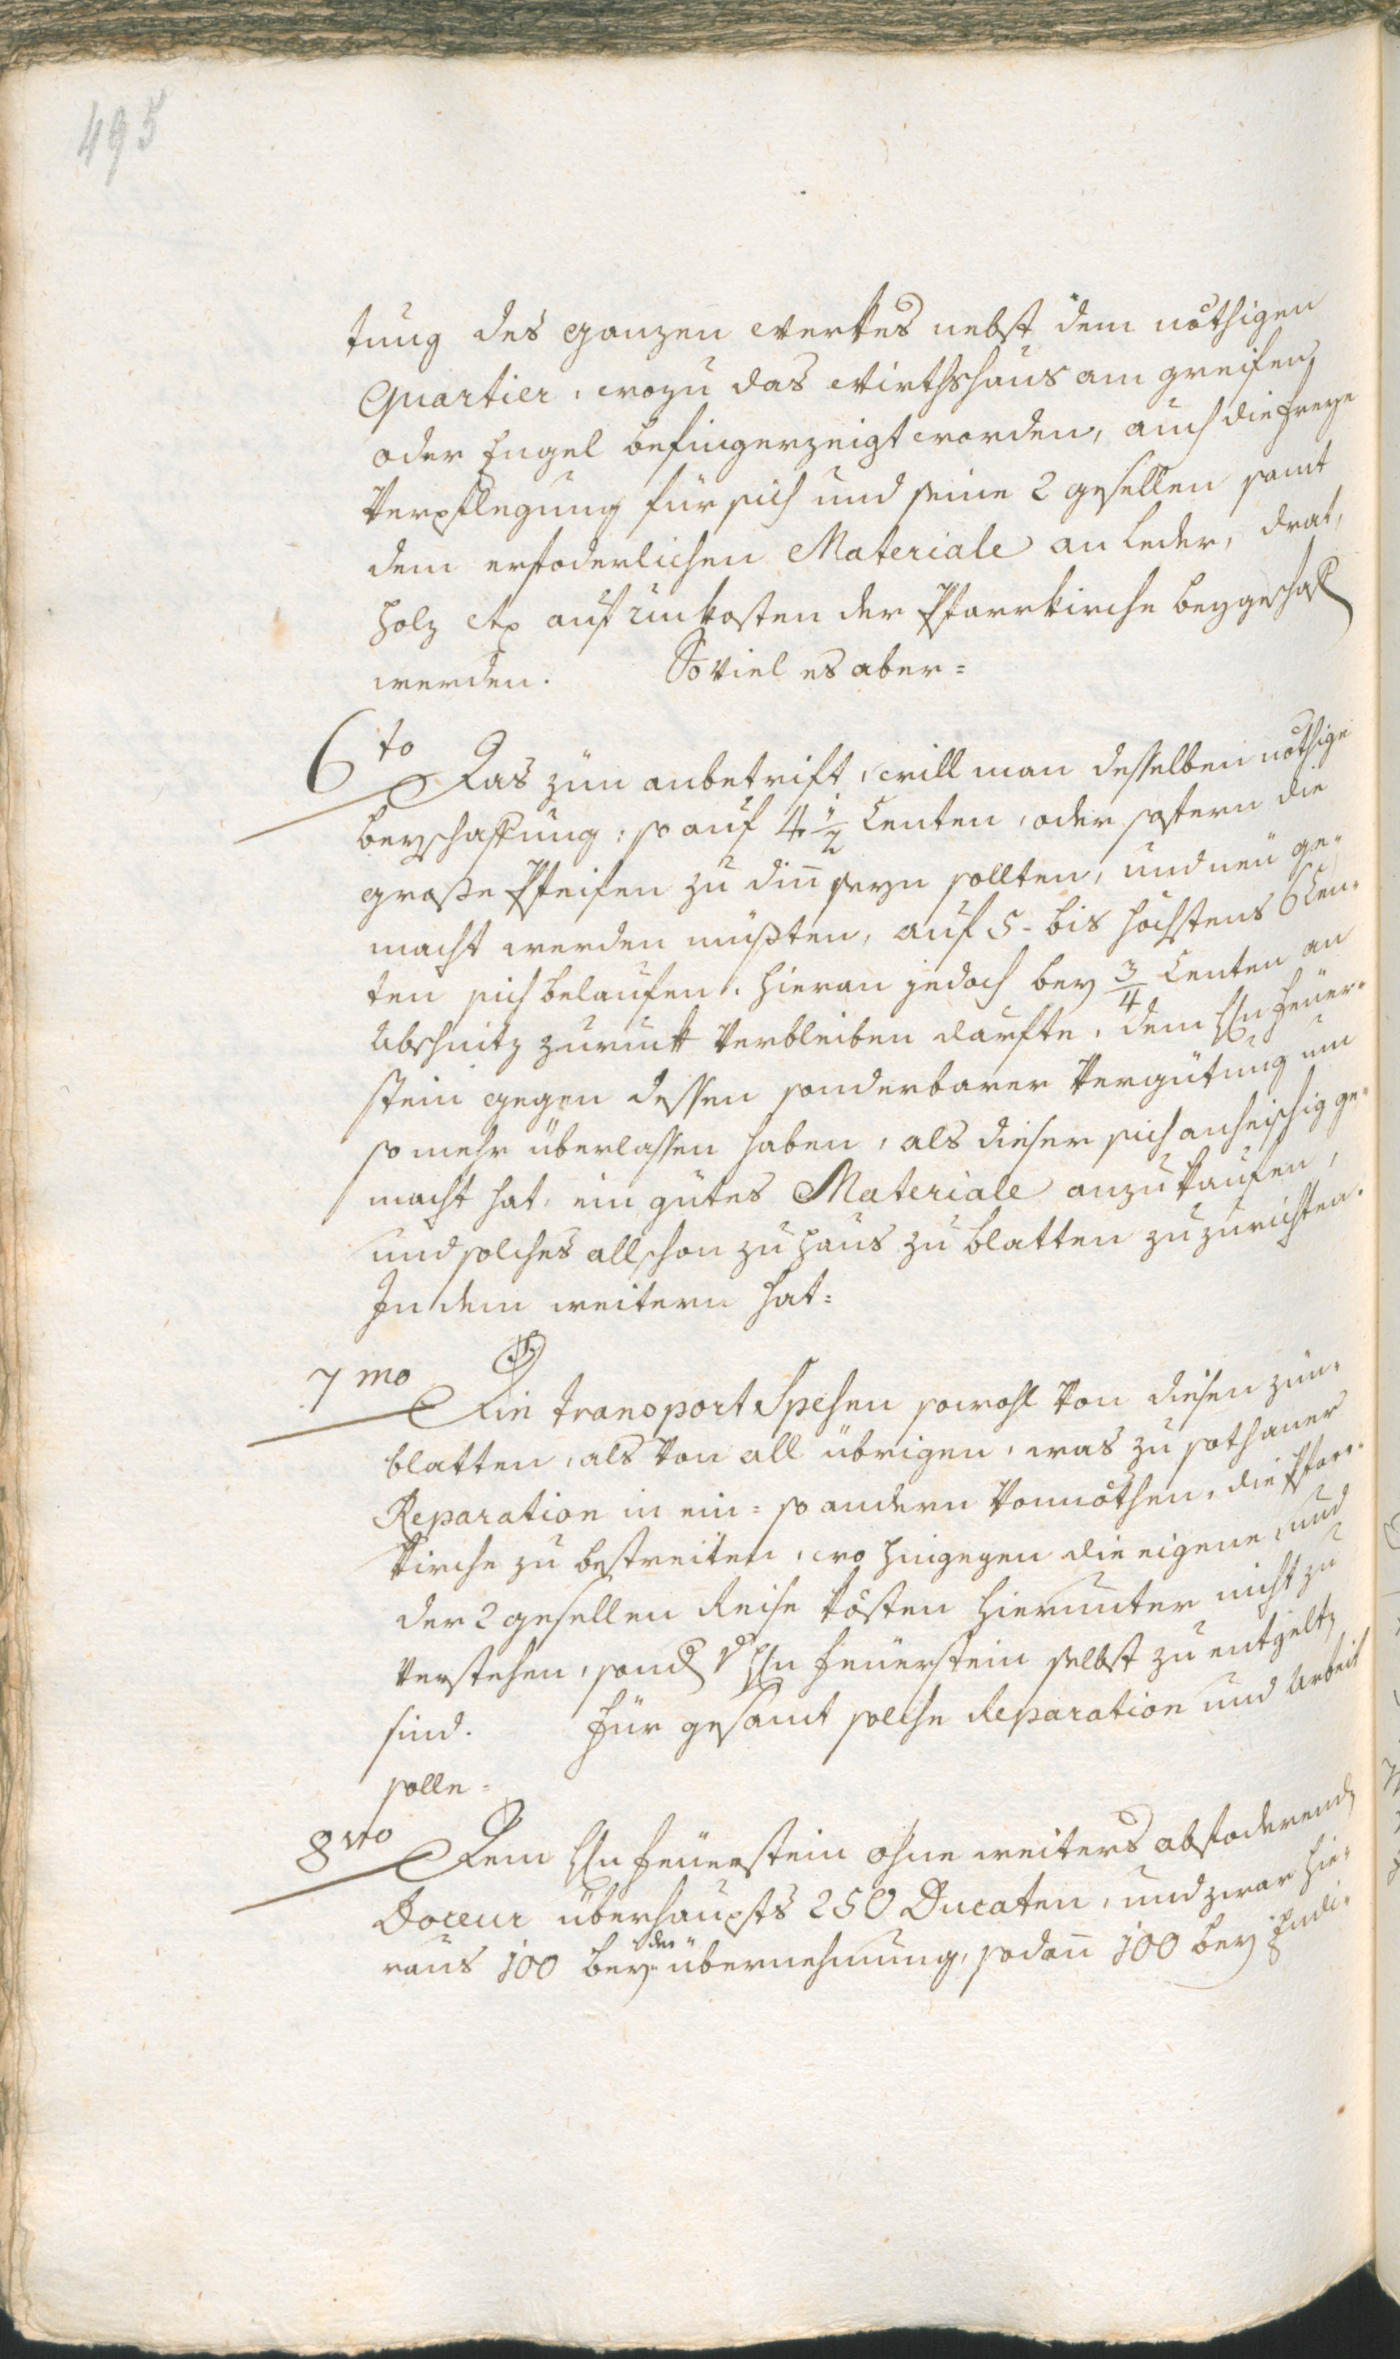 495
tung des ganzen Werkes nebst dem nöthigen
Quartier, wozu das Wirthshaus am greifen,
oder Engel befingerzeigt worden, auch die freye
Verpflegung für sich und seine 2 gesellen samt
dem erfoderlichen Materiale an Leder, drat,
Holz etc auf unkosten der Pfarrkirche beygeschaft
werden. So viel es aber=
6to Das zün anbetrift, will man desselben nöthige
beyschaffung: so auf 4 1/2 Centen, oder sofern die
große Pfeifen zu din̄ seyn sollten, und neü ge-
macht werden müßten, auf 5- bis höchstens 6 Cen-
ten sich belaufen, hievon jedoch bey 3/4 Centen an
Abschnitz zuruck verbleiben darfte, dem Hn Feüer-
stein gegen dessen sonderbarer Vergütung um
so mehr überlassen haben, als dieser sich anheischig ge-
macht hat, ein gutes Materiale anzukaufen,
und solches allschon zu Haus zu blatten zuzurichten.
In dem weitern hat=
7mo Die transport Spesen sowohl von diesen zün-
blatten, als von all übrigen, was zu sothaner
Reparation in ein= so andern vonnöthen, die Pfarr-
Kirche zu bestreiten, wo hingegen die eigene und
der 2 gesellen Reise kösten hierunter nicht zu
verstehen, sond. v Hn Feüerstein selbst zu entgeltn
sind. Für gesamt solche Reparation und Arbeit
solle=
8vo Dem Hn Feüerstein ohne weiters abfoderendn
Doceur überhaupts 250 Ducaten, und zwar hie-
raus 100 bey der übernehmung, sodan̄ 100 bey Endi-